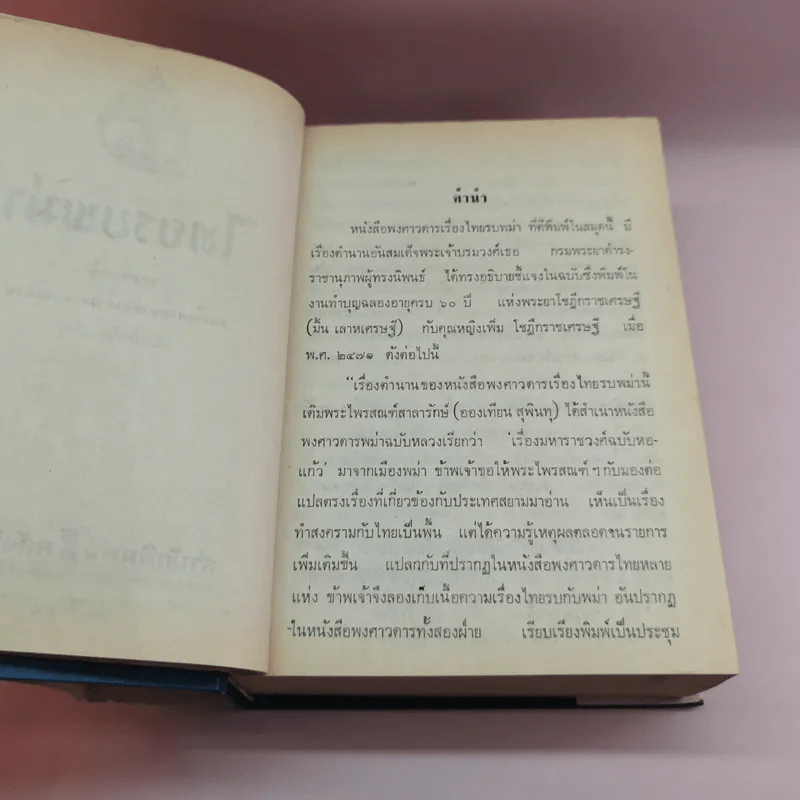 ไทยรบพม่า
คำนำ
หนังสือพงศาวดารเรื่องไทยรบพม่า ที่ตีพิมพ์ในสมุดนี้ มี
เรื่องตำนานอันสมเด็จพระเจ้าบรมวงศ์เธอ กรมพระยาดำรง-
ราชานุภาพผู้ทรงนิพนธ์ ได้ทรงอธิบายชี้แจงในฉบับซึ่งพิมพ์ใน
งานทำบุญฉลองอายุครบ ๖๐ ปี แห่งพระยาโชฎึกราชเศรษฐี
(มิ้น เลาหเศรษฐี) กับคุณหญิงเพิ่ม โชฎึกราชเศรษฐี เมื่อ
พ.ศ. ๒๔๗๑ ดังต่อไปนี้
"เรื่องตำนานของหนังสือพงศาวดารเรื่องไทยรบพม่านี้
เดิมพระไพรสณฑ์สาลารักษ์ (อองเทียน สุพินทุ) ได้สำเนาหนังสือ
พงศาวดารพม่าฉบับหลวงเรียกว่า 'เรื่องมหาราชวงศ์ฉบับหอ-
แก้ว' มาจากเมืองพม่า ข้าพเจ้าขอให้พระไพรสณฑ์ ฯ กับมองต่อ
แปลตรงเรื่องที่เกี่ยวข้องกับประเทศสยามมาอ่าน เห็นเป็นเรื่อง
ทำสงครามกับไทยเป็นพื้น แต่ได้ความรู้เหตุผลตลอดจนรายการ
เพิ่มเติมขึ้น แปลกกับที่ปรากฏในหนังสือพงศาวดารไทยหลาย
แห่ง ข้าพเจ้าจึงลองเก็บเนื้อความเรื่องไทยรบกับพม่า อันปรากฏ
ในหนังสือพงศาวดารทั้งสองฝ่าย เรียบเรียงพิมพ์เป็นประชุม